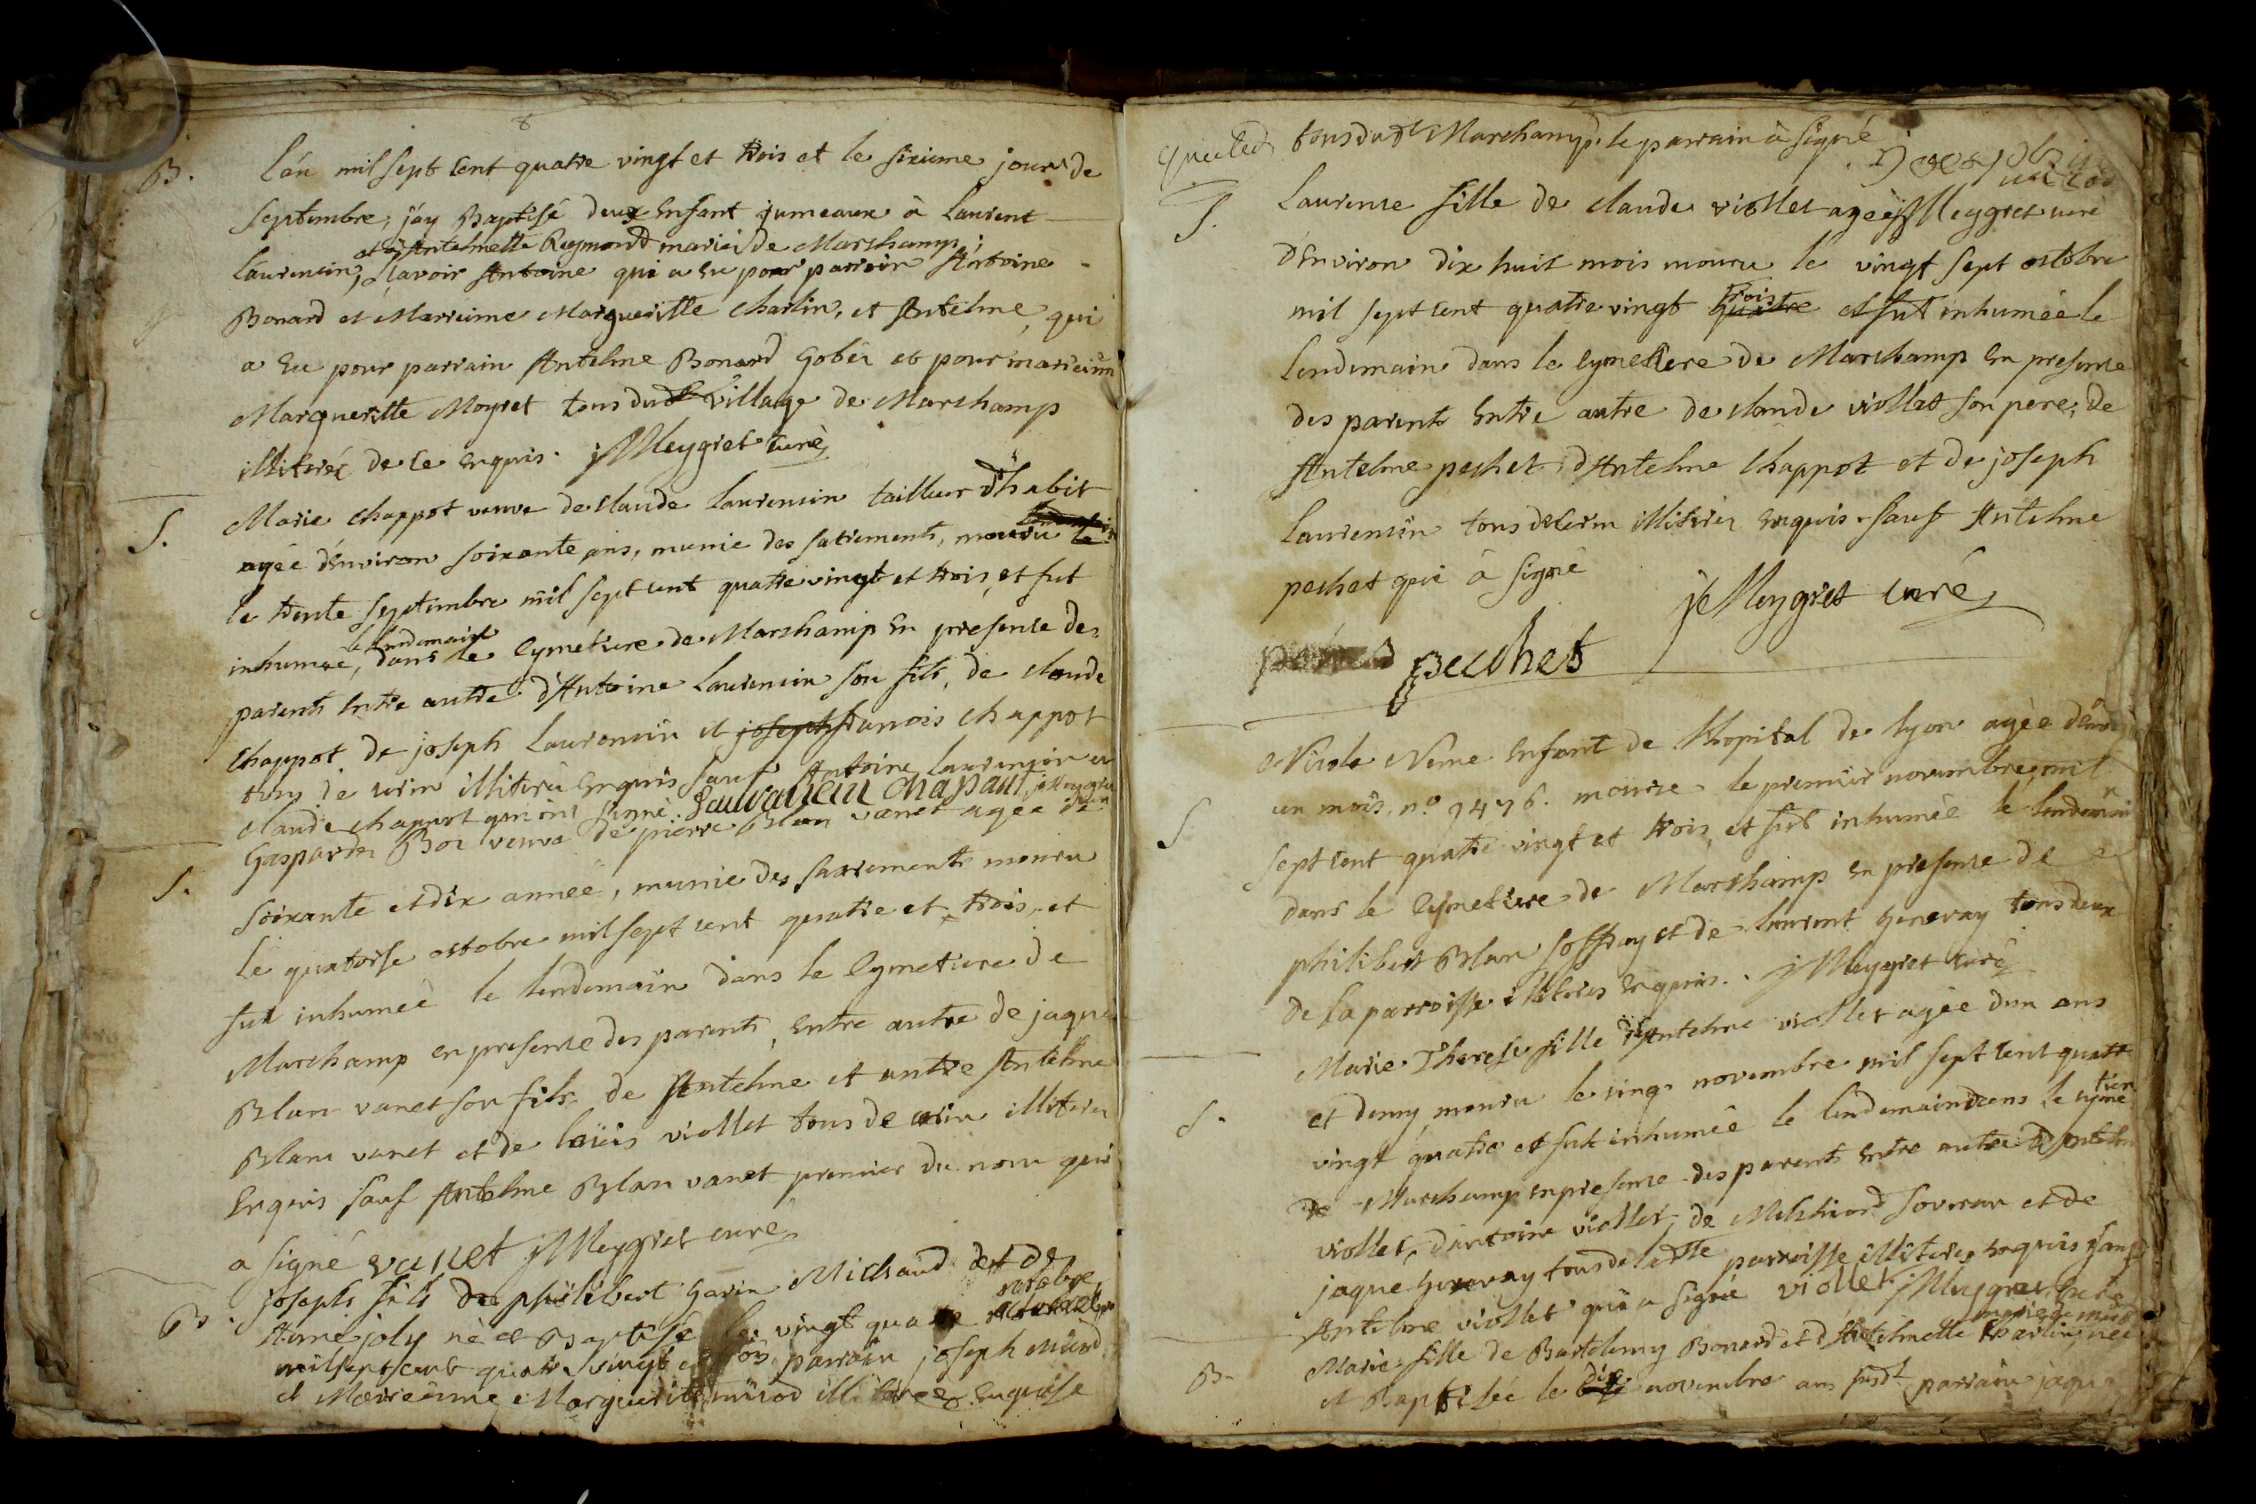 B. l'án mil sept cent quatre vingt et trois et le sixieme jour de
septembre, j'ay Baptisé deux Enfant jumeaux à Laurent
et à Antelmette Reymond mariés de Marchamp,
Laurencin, sçavoir Antoine qui a eu pour parrain Antoine
Bonard et Marreime Margueritte Charlin, et Antelme, qui
a Eu pour parrain Antelme Bonard Gobéz et pour marreime
Margueritte Moyret tous dudt village de Marchamp
illiterés de ce Enquis. j Meygret curé
S. Marie chappot veuve de Claude Laurencin tailleur d'habit
agée d'Environ soixante ans, munie des sacrements, mouru
le trente septembre mil sept cent quatre vingt et trois, et fut
inhumée, le lendemain dans le Cymetiere de Marchamp En presence des
parents Entre autre d'Antoine Laurencin son fils, de claude
Chappot de joseph Laurencin et joseph francois chappot
tous de cerin illiteré Enquis sauf Antoine Laurencin et
claude chappot qui ont signé. Lauranсin chapaut j Meygret
S. Gasparde Boz veuve de pierre Blan vanet agée d'En
soixante et dix anneé, munie des sacrements mouru
le quatorse octobre mil sept cent quatre et trois, et
fut inhumeé le lendemain dans le Cymetiere de
Marchamp en presence des parents, Entre autre de jaque
Blan vanet son fils de Antelme et autre Antelme
Blanc vanet et de loüis viollet tous de cerin illiterez
Enquis sauf Antelme Blan vanet premier du nom qui
a signé vanet j Meygret curé
B. joseph fils de philibert Garin Michaud et de
Anne joly né et Baptisé le vingt quatre octobre
mil sept cent quatre vingt et trois, parrain joseph Miind
et Marreime Marguerite illiterée Enquise
tous dudt Marchamp. le parrain à signé
S. Laurence fille de claude viollet agée j Meygret curé
d'Environ dix huit mois mouru le vingt sept octobre
mil sept cent quatre vingt quatre trois et fut inhumée le
lendemain dans le Cymetiere de Marchamp En presence
des parents Entre autre de claude viollet son pere, de
Antelme pechet d'Antelme Chappot et de joseph
Laurencin tous de Cerin illiterez Enquis sauf Antelme
pechet qui à signé j Meygret curé
pecchet
S. Nicole Neme Enfant de l'hopital de lyon agée d'Environ
un mois, n.º 2476. mouru le premier novembre mil
sept cent quatre vingt et trois, et fut inhumée le lendemain
dans le Cymetiere de Marchamp En presence de
philibert Blan soffray et de laurent Genevay tous deux
de la parroisse illiterés Enquis. j Meygret curé
S. Marie Therese fille d'Antelme viollet agée d'un ans
et demy mouru le cinq novembre mil sept cent quatre
vingt quatre et fut inhumée le lendemain dans le cymetiere
de Marchamp en presence des parents Entre autre d'Antelme
viollet, d'antoine viollet, de Melchiord soveran et de
jaque Genevay tous de ladtte parroisse illiterés Enquis sauf
Antelme viollet qui a signé viollet j Meygret curé
B. Marie fille de Bartelemy Bonard et d'Antelmette Charlin, née
et Baptisée le dix novembre ans susdt parrain jaque